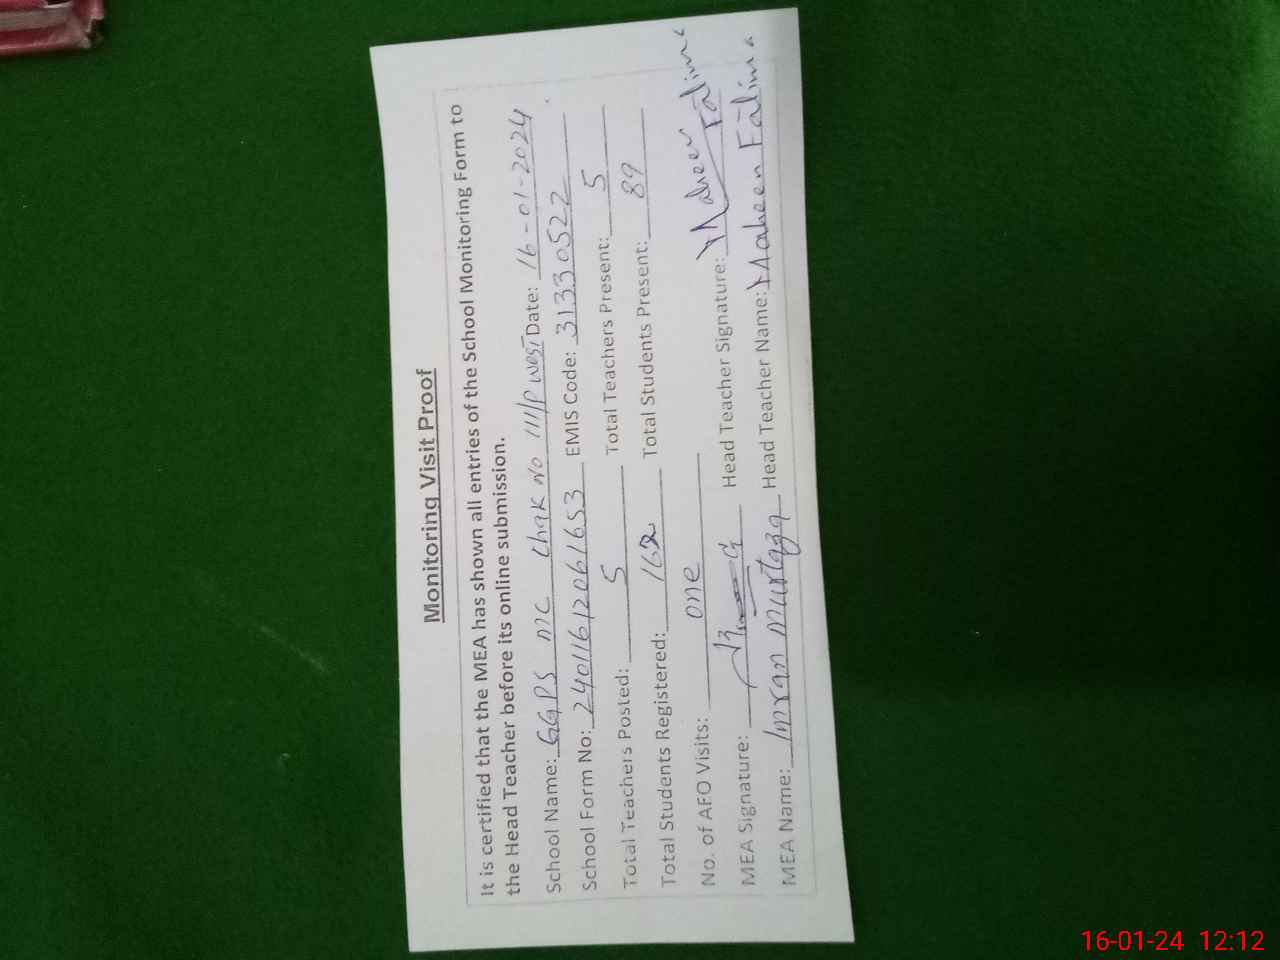 Monitoring Visit Proof
It is certified that the MEA has shown all entries of the School Monitoring Form to
the Head Teacher before its online submission.
School Name: GGPS MC Chak No 111/P West Date: 16-01-2024
School Form No: 24011612061653 EMIS Code: 31330522
Total Teachers Posted: 5 Total Teachers Present: 5
Total Students Registered: 162 Total Students Present: 89
No. of AEO Visits: one
MEA Signature: Head Teacher Signature: Maheen Fatima
MEA Name: Imran Murtaza Head Teacher Name: Maheen Fatima
16-01-24 12:12